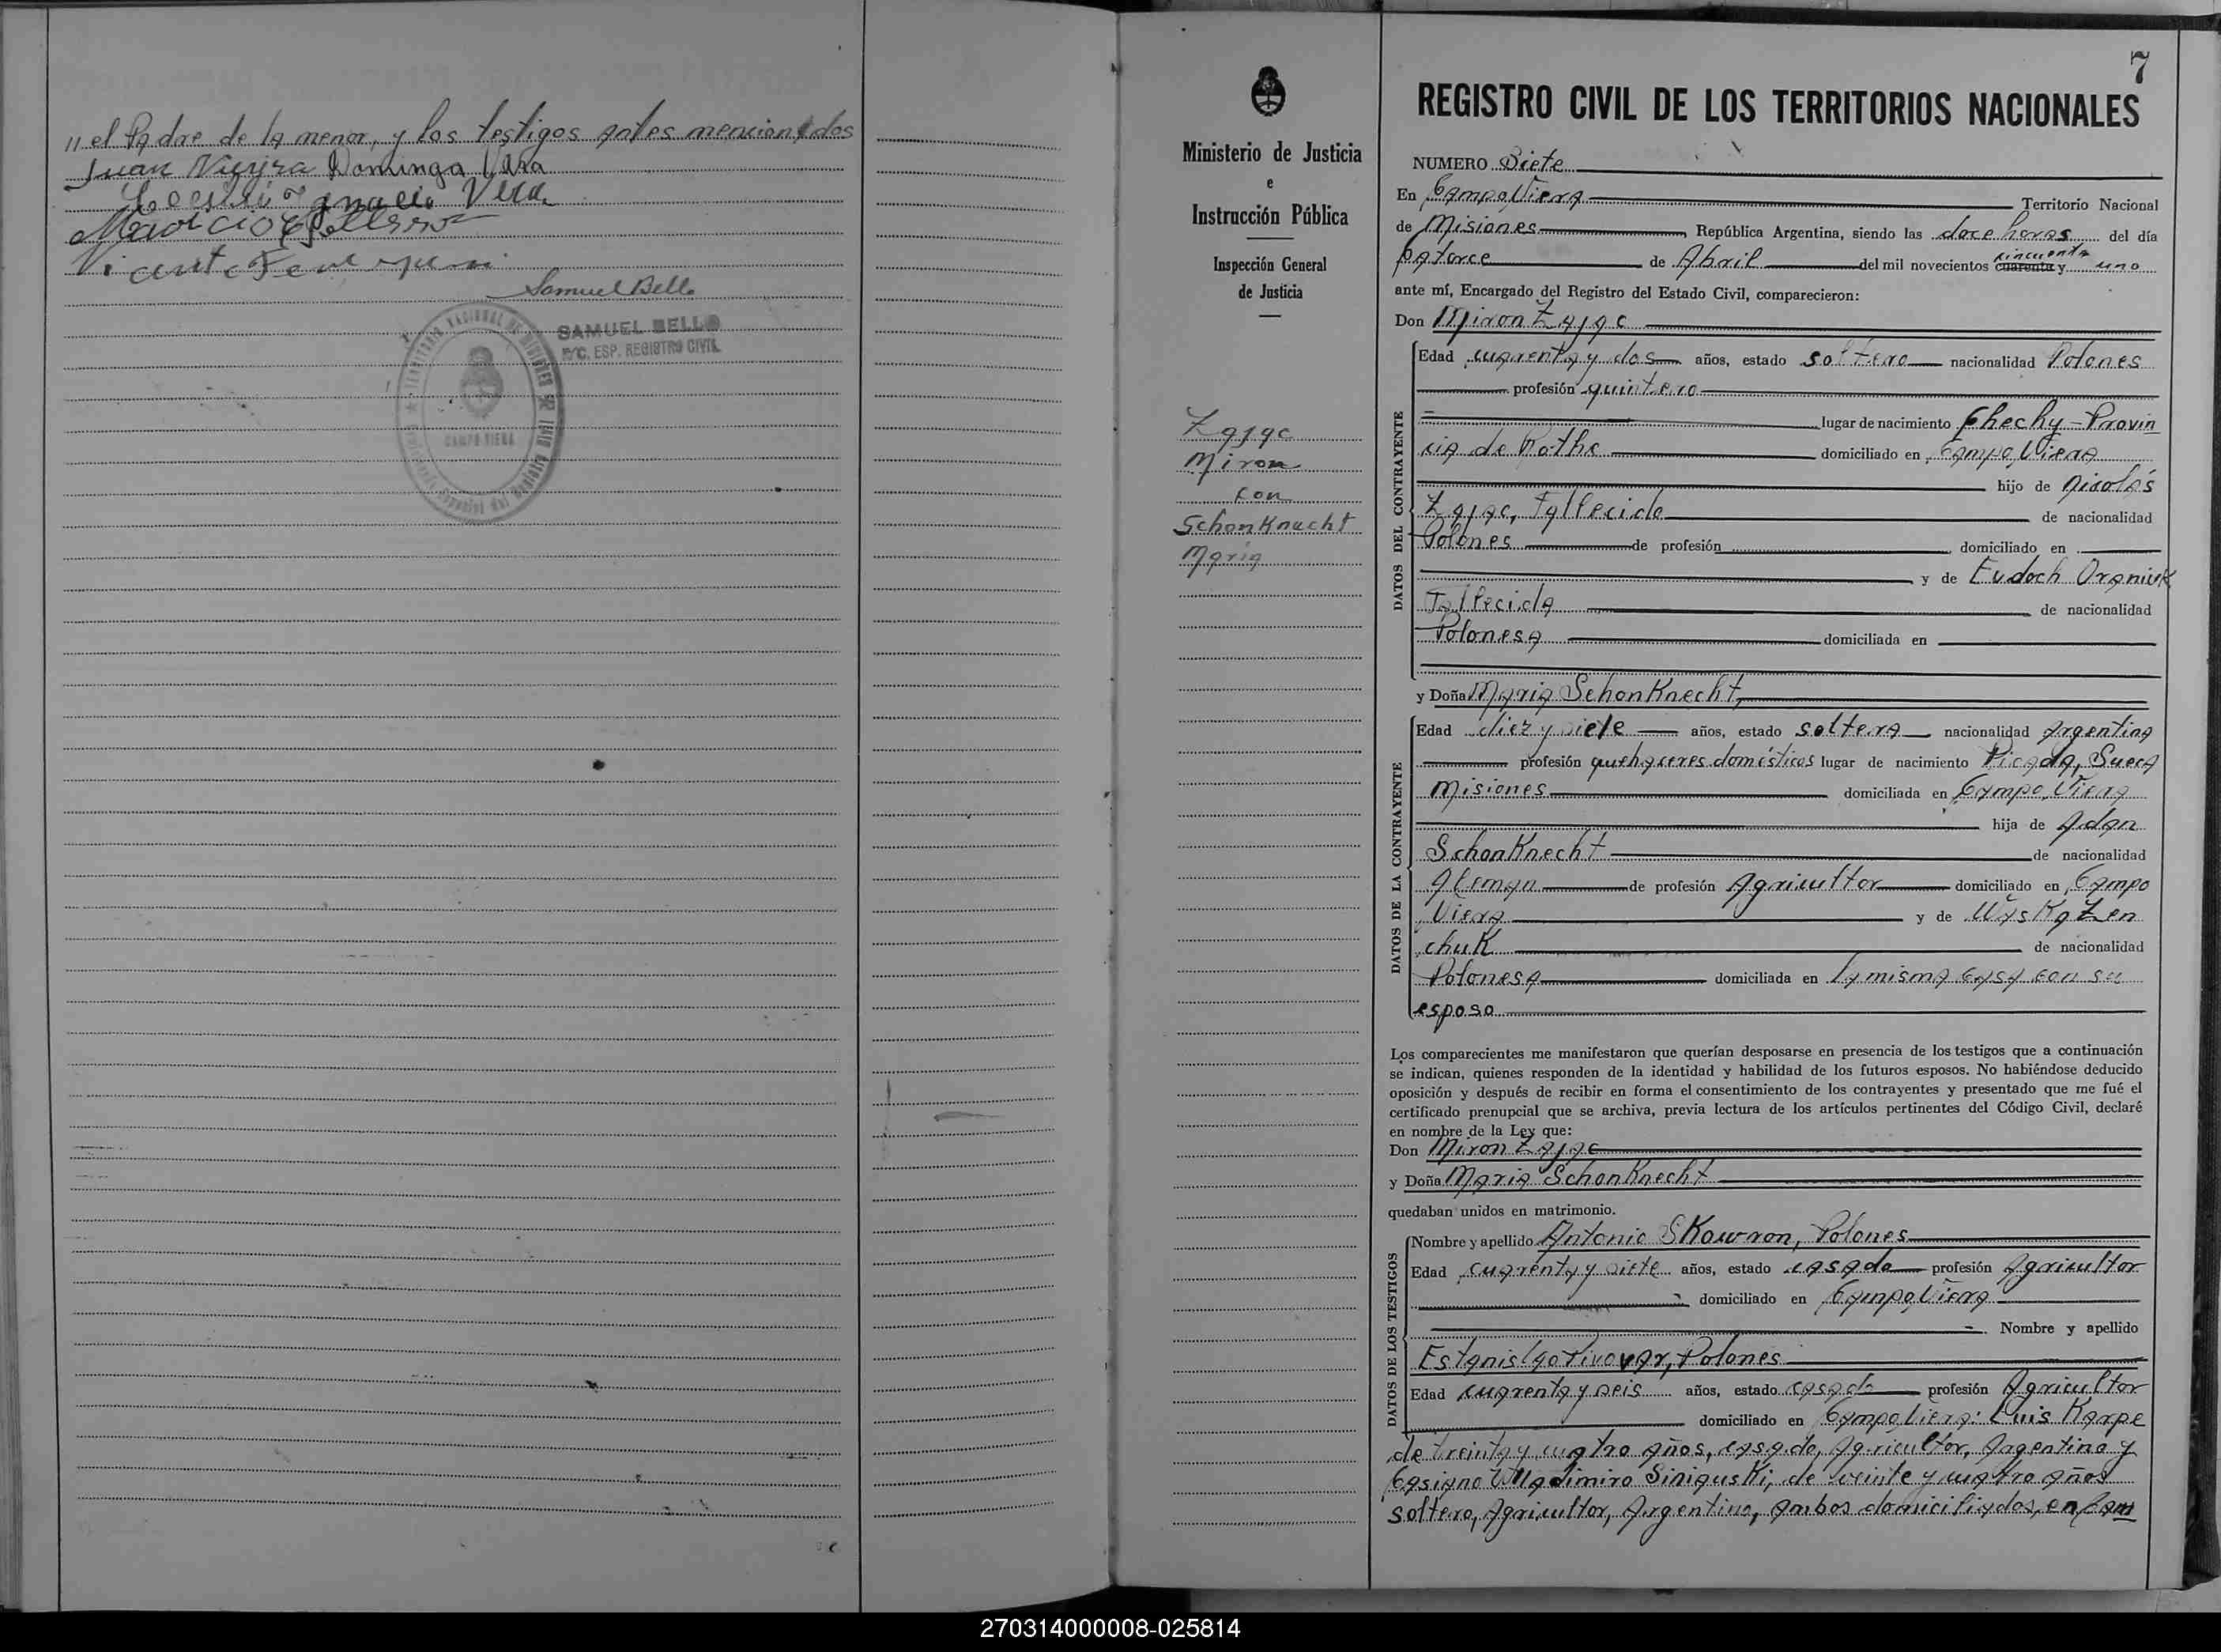 " el Padre de la menor, y los testigos antes mencionados
Juan Vieyra Dominga Vera
Ignacio Vera
Vicente
Samuel Bello
SAMUEL BELLO
E/C. ESP. REGISTRO CIVIL
TERRITORIO NACIONAL DE MISIONES
CAMPO VIERA
7
Ministerio de Justicia
e
Instrucción Pública
Inspección General
de Justicia
Zajac
Miron
con
Schonknecht
Maria
REGISTRO CIVIL DE LOS TERRITORIOS NACIONALES
NUMERO Siete
En Campo Viera Territorio Nacional
de Misiones República Argentina, siendo las doce horas del día
catorce de Abril del mil novecientos cuarenta y cincuenta uno
ante mí, Encargado del Registro del Estado Civil, comparecieron:
Don Miron Zajac
DATOS DEL CONTRAYENTE
Edad cuarenta y dos años, estado soltero nacionalidad Polones
profesión quintero
lugar de nacimiento Chechy - Provin
cia de Rothe domiciliado en Campo Viera
hijo de Nicolás
Zajac, Fallecido de nacionalidad
Polones de profesión domiciliado en
y de Eudoch Oraniuk
Fallecida de nacionalidad
Polonesa domiciliada en
y Doña Maria Schonknecht,
DATOS DE LA CONTRAYENTE
Edad diez y siete años, estado soltera nacionalidad Argentina
profesión quehaceres domésticos lugar de nacimiento Picada, Sueca
Misiones domiciliada en Campo, Viera
hija de Adan
Schonknecht de nacionalidad
Aleman de profesión Agricultor domiciliado en Campo
Viera y de Waska Zen
chuk de nacionalidad
Polonesa domiciliada en la misma casa con su
esposo
Los comparecientes me manifestaron que querían desposarse en presencia de los testigos que a continuación
se indican, quienes responden de la identidad y habilidad de los futuros esposos. No habiéndose deducido
oposición y después de recibir en forma el consentimiento de los contrayentes y presentado que me fué el
certificado prenupcial que se archiva, previa lectura de los artículos pertinentes del Código Civil, declaré
en nombre de la Ley que:
Don Miron Zajac
y Doña Maria Schonknecht
quedaban unidos en matrimonio.
DATOS DE LOS TESTIGOS
Nombre y apellido Antonio Skowron, Polones
Edad cuarenta y siete años, estado casado profesión Agricultor
domiciliado en Campo Viera
Nombre y apellido
Estanislao Pivovar, Polones
Edad cuarenta y seis años, estado casado profesión Agricultor
domiciliado en Campo Viera: Luis Karpe
de treinta y cuatro años, casado, Agricultor, Argentino y
Casiano Wladimiro Siniauski, de veinte y cuatro años
soltero, Agricultor, Argentino, ambos domiciliados, en Cam
270314000008-025814